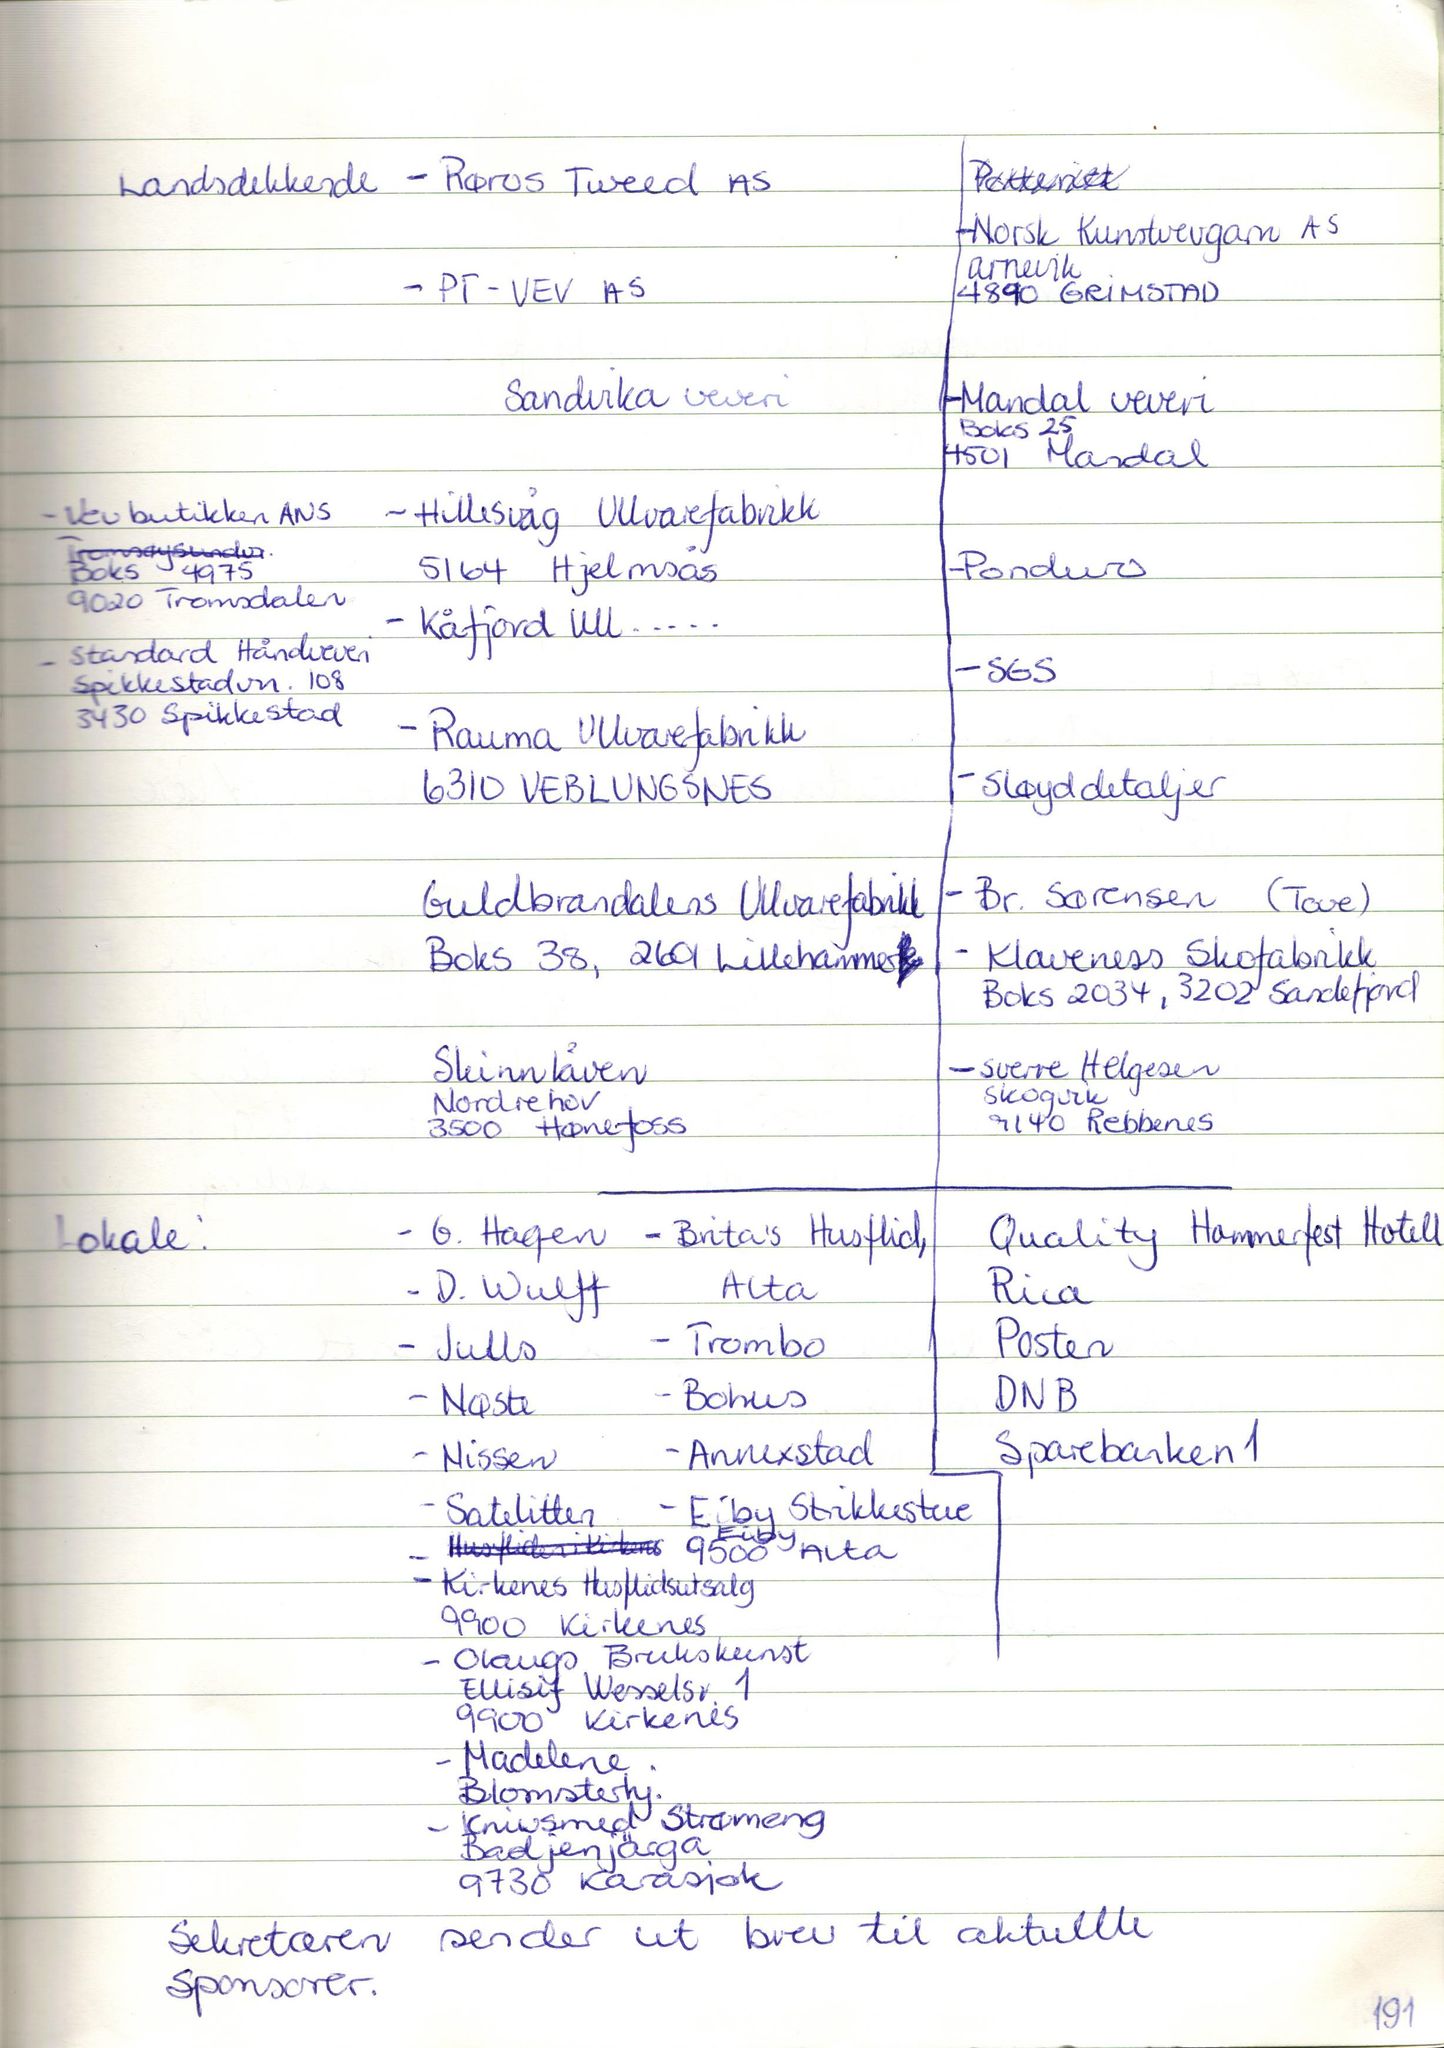 Landsdekkende - Røros Tweed AS
- PT-VEV AS
Sandvika veveri
- Vevbutikken ANS
Tromsøysundv.
Boks 4975
9020 Tromsdalen
- Standard Håndveveri
Spikkestadvn. 108
3430 Spikkestad
- Hillesvåg Ullvarefabrikk
5164 Hjelmsås
- Kåfjord Ull .....
- Rauma Ullvarefabrikk
6310 VEBLUNGSNES
Guldbrandalens Ullvarefabrikk
Boks 38, 2601 Lillehammer
Skinnlåven
Nordrehov
3500 Hønefoss
- Norsk Kunstvevgarn AS
Arnevik
4890 GRIMSTAD
- Mandal veveri
Boks 25
4501 Mandal
- Panduro
- SGS
- Sløyddetaljer
- Br. Sørensen (Tove)
- Klaveness Skofabrikk
Boks 2034, 3202 Sandefjord
- Sverre Helgesen
Skogvik
9140 Rebbenes
Lokale:
- G. Hagen
- D. Wulff
- Julls
- Næste
- Nissen
- Satelitten
- Kirkenes Husflidsutsalg
9900 Kirkenes
- Olaugs Brukskunst
Ellisif Wesselsv. 1
9900 Kirkenes
- Madelene.
Blomsterhj.
- Knivsmed Strømeng
Badjenjárga
9730 Karasjok
- Brita's Husflid,
Alta
- Trombo
- Bohus
- Annexstad
- Eiby Strikkestue
Eiby
9500 Alta
Quality Hammerfest Hotell
Rica
Posten
DNB
Sparebanken 1
Sekretæren sender ut brev til aktuelle
sponsorer.
191